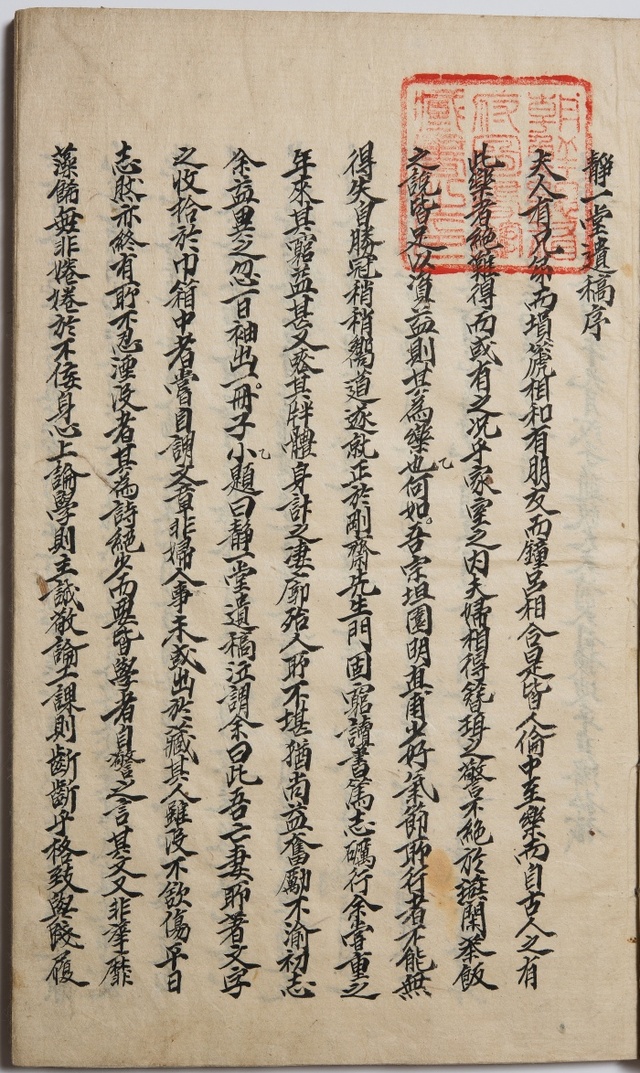 靜一堂遺稿序
夫人有兄弟而塤篪相和有朋友而鐘呂相合是皆人倫中至樂而自古人之有
此樂者絶難得而或有之况乎家室之内夫婦相得簪珥之警不絶於衽閨举飯
之說皆足以資益則其為樂也何如吾宗坦園明直甫少好氣節所行者不能無
得失自勝冠稍稍嚮道遂就正於剛齋先生門固窮讀書篤志礪行余嘗重之
年來其窮益甚又睽其牉體身計之凄廓殆人所不堪猶尚益奮勵不渝初志
余益異之忽一日袖出一冊子小題曰靜一堂遺稿泣謂余曰此吾亡妻所著文字
之收拾於巾箱中者嘗自謂文章非婦人事未或出於藏其人雖没不欲傷平日
志然亦終有所不忍湮没者其為詩絶少而要皆學者自警之言其文又非華靡
藻餙無非惓惓於不佞身心上論學則主誠敬論工課則斷斷乎格致與踐履